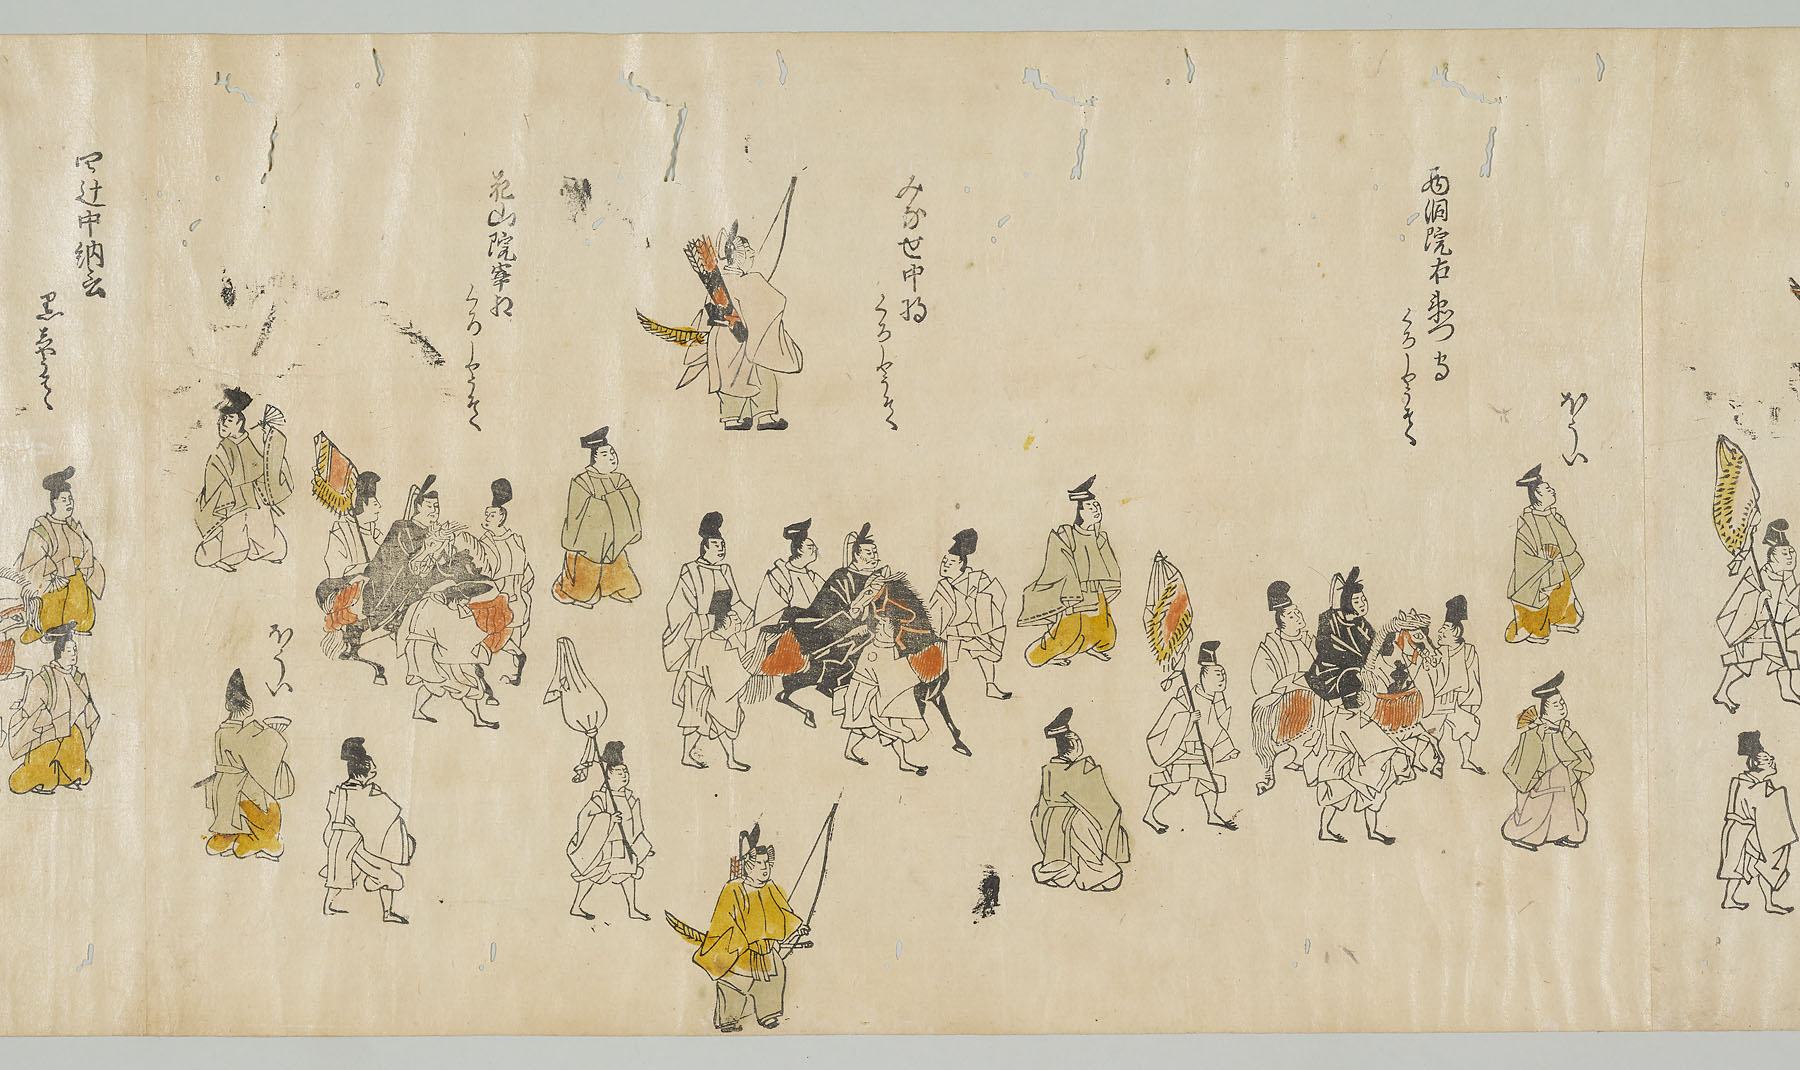 西洞院右衛門守
くろしやうそく
ほうい
みなせ中将
くろしやうそく
花山院宰相
くろしやうそく
ほうい
四辻中納言
黒しやうそく